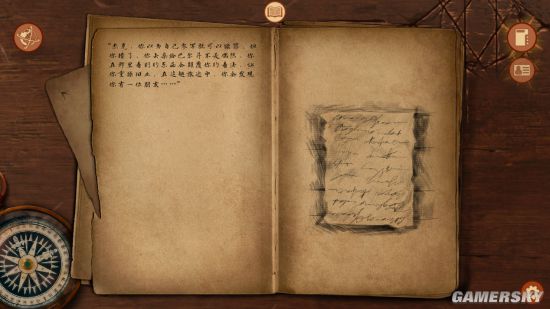 “杰克，你以为自己参军就可以赎罪，但
你错了，你去桑给巴尔并不是偶然，你
在那里看到的东西会颠覆你的看法，让
你重操旧业，在这趟旅途中，你会发现
你有一位朋友……”
GAMERSKY